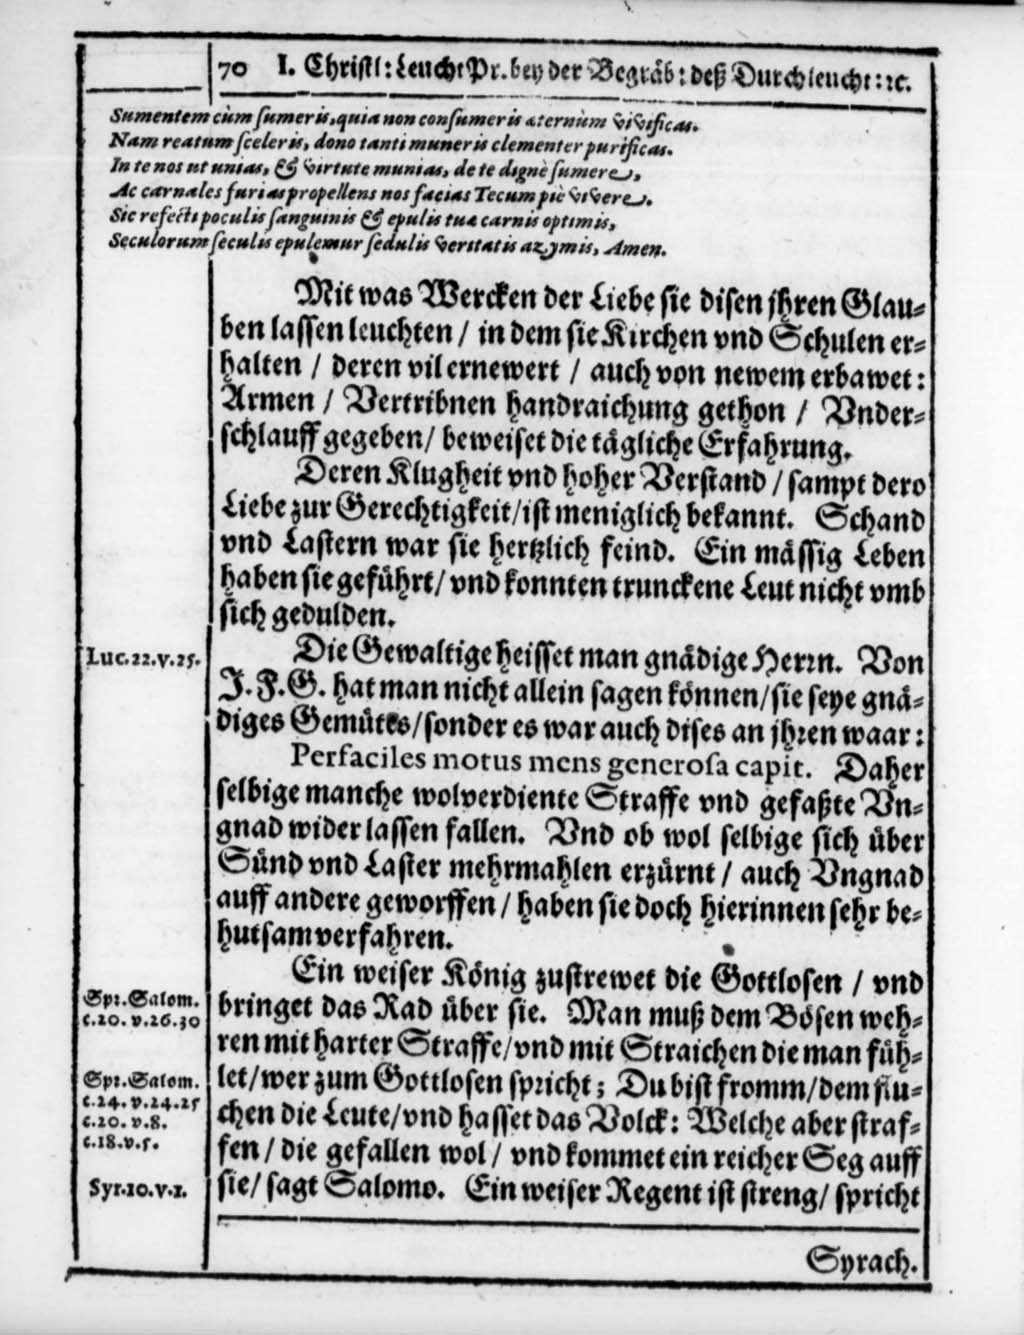 70 I. Christl: LeuchtPr. bey der Begräb: deß Durchleucht: ꝛc.
Sumentem cùm sumeris, quia non consumeris æternùm vivificas.
Nam reatum sceleris, dono tanti muneris clementer purificas.
In te nos ut unias, & virtute munias, de te dignè sumere,
Ac carnales furias propellens nos facias Tecum piè vivere.
Sic refecti poculis sanguinis & epulis tuæ carnis optimis,
Seculorum seculis epulemur sedulis veritatis azymis, Amen.
Mit was Wercken der Liebe sie disen jhren Glau-
ben lassen leuchten / in dem sie Kirchen vnd Schulen er-
halten / deren vil ernewert / auch von newem erbawet:
Armen / Vertribnen handraichung gethon / Vnder-
schlauff gegeben / beweiset die tägliche Erfahrung.
Deren Klugheit vnd hoher Verstand / sampt dero
Liebe zur Gerechtigkeit / ist meniglich bekannt. Schand
vnd Lastern war sie hertzlich feind. Ein mässig Leben
haben sie geführt / vnd konnten trunckene Leut nicht vmb
sich gedulden.
Luc. 22. v. 25.
Die Gewaltige heisset man gnädige Herrn. Von
J. F. G. hat man nicht allein sagen können / sie seye gnä-
diges Gemütes / sonder es war auch dises an jhren waar:
Perfaciles motus mens generosa capit. Daher
selbige manche wolverdiente Straffe vnd gefaßte Vn-
gnad wider lassen fallen. Vnd ob wol selbige sich über
Sünd vnd Laster mehrmahlen erzürnt / auch Vngnad
auff andere geworffen / haben sie doch hierinnen sehr be-
hutsam verfahren.
Ein weiser König zustrewet die Gottlosen / vnd
Spr. Salom.
c. 20. v. 26. 30
bringet das Rad über sie. Man muß dem Bösen weh-
ren mit harter Straffe / vnd mit Straichen die man füh-
Spr. Salom.
c. 24. v. 24. 25
c. 20. v. 8.
c. 18. v. 5.
let / wer zum Gottlosen spricht; Du bist fromm / dem flu-
chen die Leute / vnd hasset das Volck: Welche aber straf-
fen / die gefallen wol / vnd kommet ein reicher Seg auff
Syr. 10. v. 1.
sie / sagt Salomo. Ein weiser Regent ist streng / spricht
Syrach.